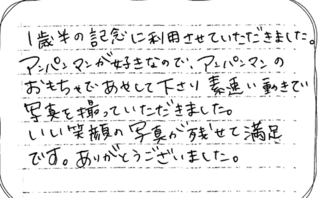 1歳半の記念に利用させていただきました。
アンパンマンが好きなので、アンパンマンの
おもちゃであやして下さり 素速い動きで
写真を撮っていただきました。
いい笑顔の写真が残せて満足
です。ありがとうございました。